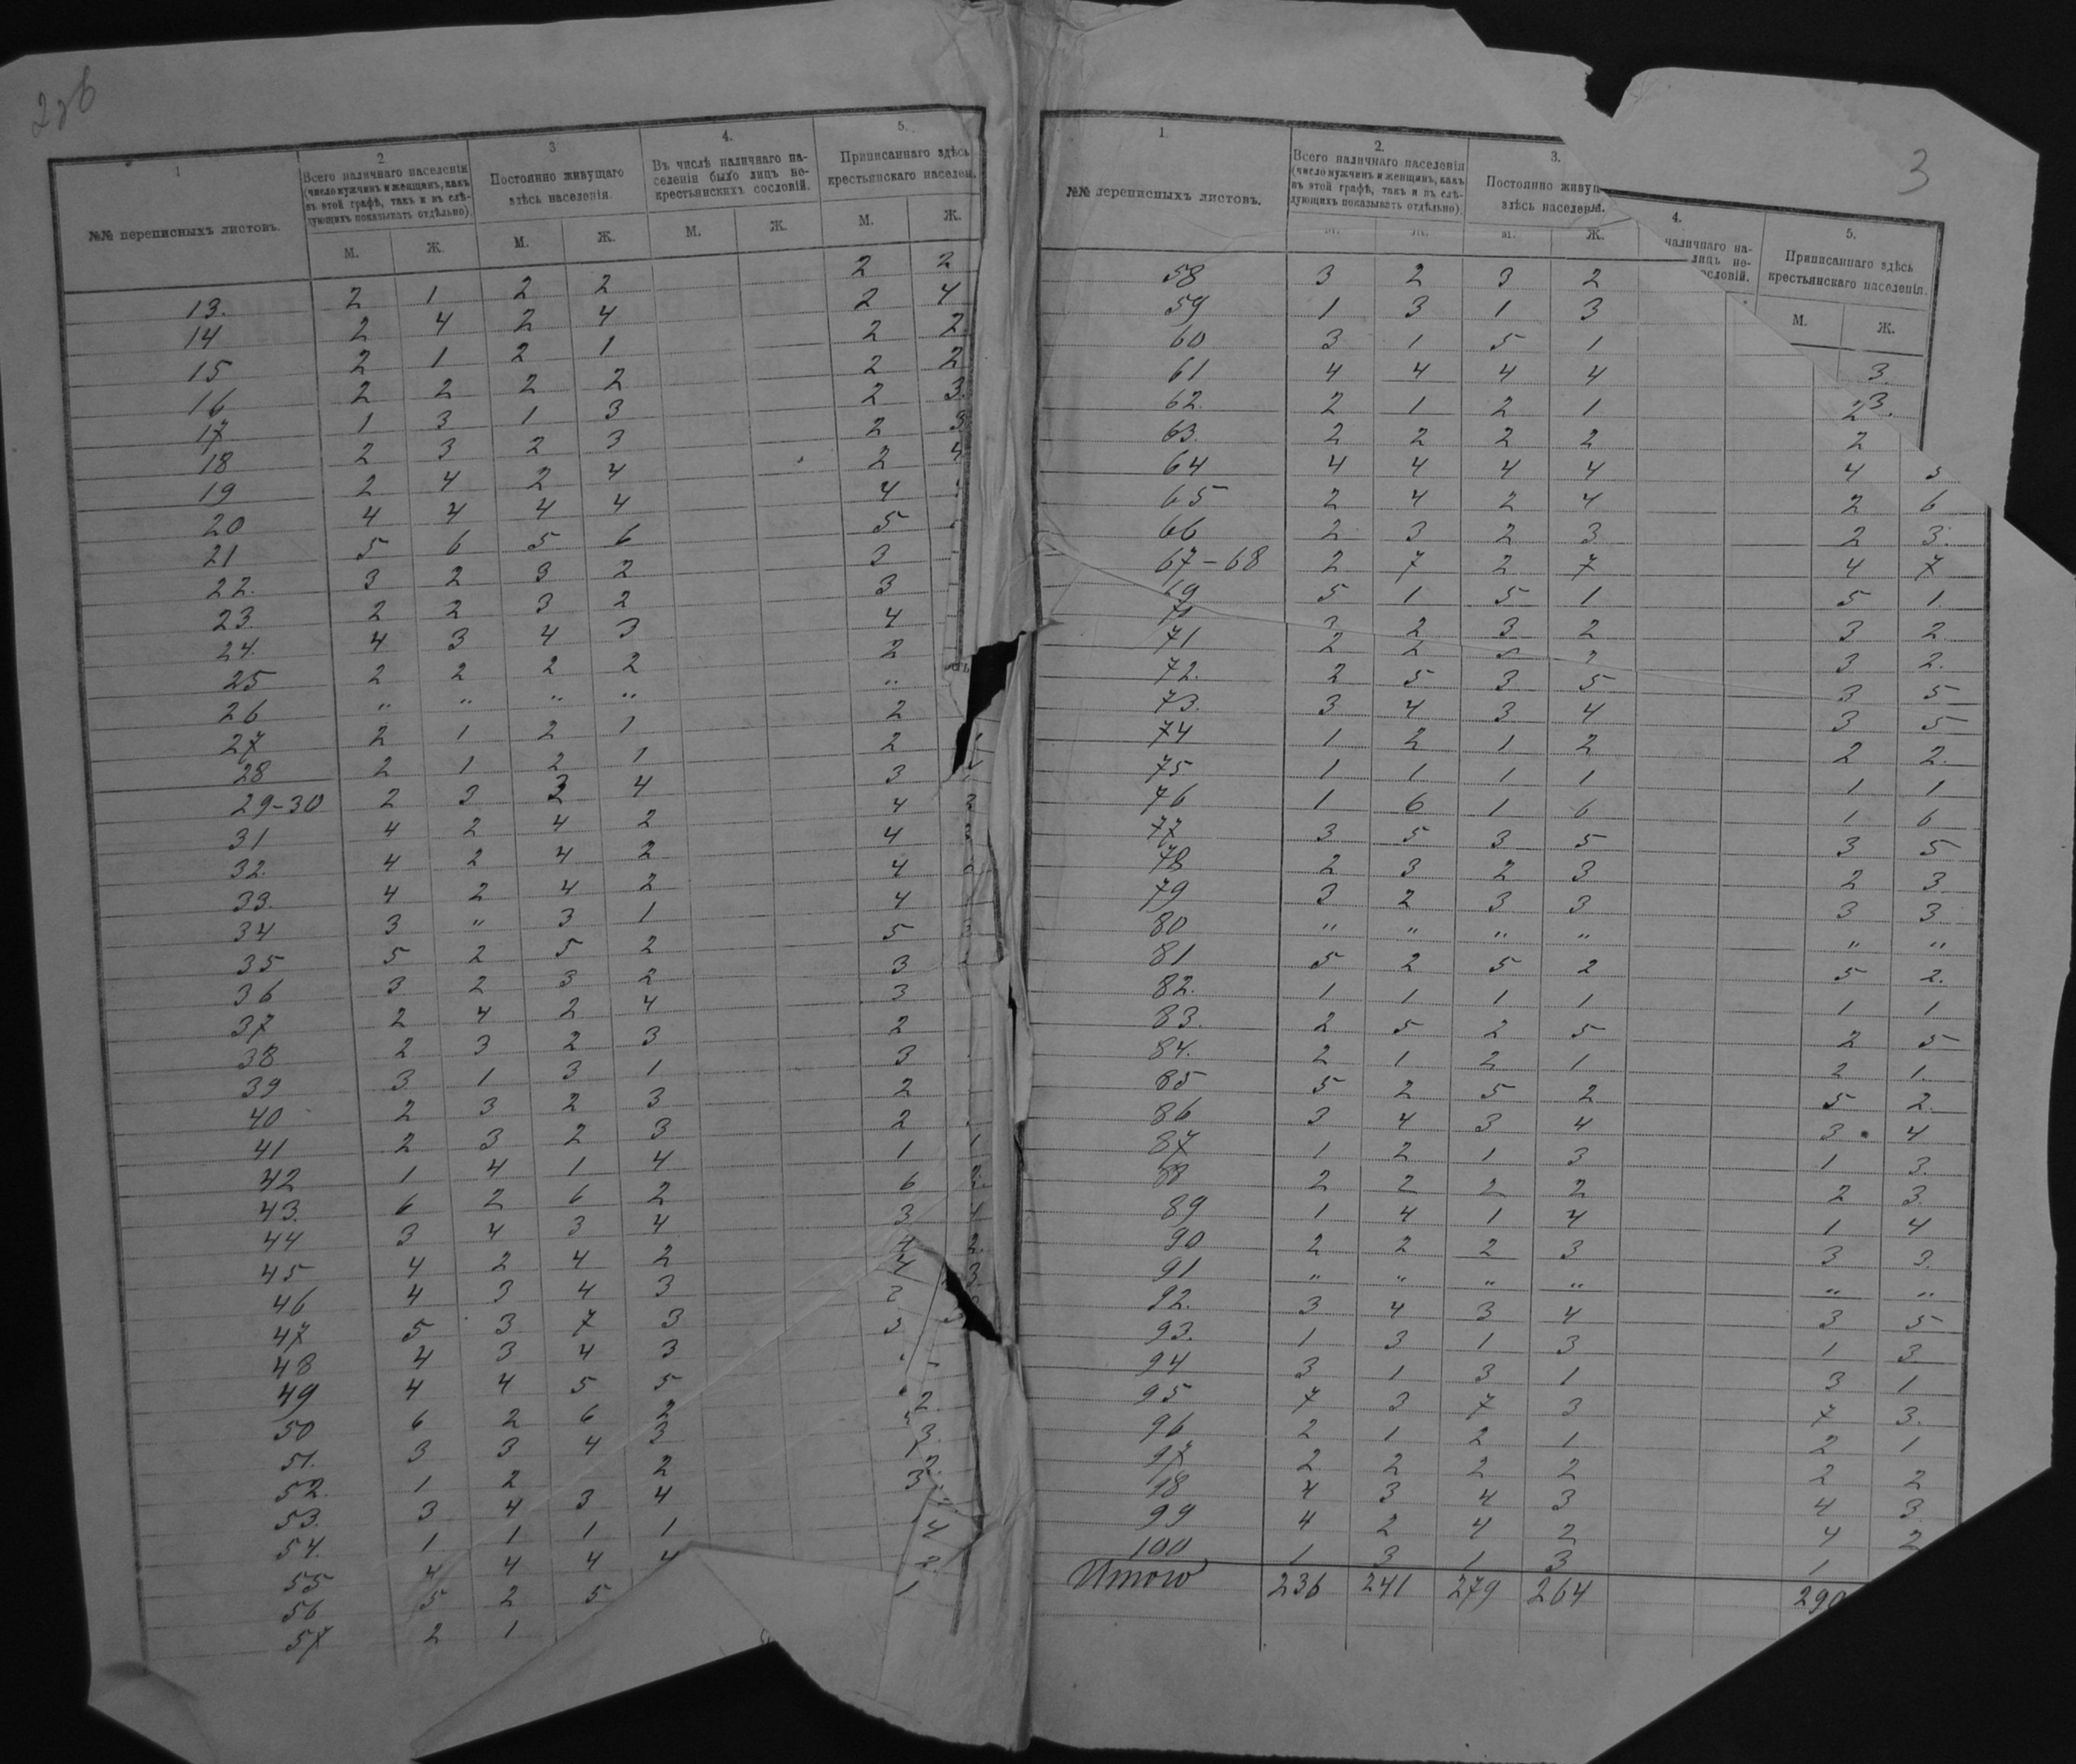 1
№№ переписныхъ листовъ.
2
Всего наличнаго населенія (число мужчинъ и женщинъ, какъ въ этой графѣ, такъ и въ слѣдующихъ показывать отдѣльно).
3
Постоянно живущаго здѣсь населенія.
4.
Въ числѣ наличнаго населенія было лицъ некрестьянскихъ сословій.
5.
Приписаннаго здѣсь крестьянскаго населен.
М. Ж. М. Ж. М. Ж. М. Ж.
13. 2 1 2 2 2 2
14 2 4 2 4 2 4
15 2 1 2 1 2 2
16 2 2 2 2 2 2
17 1 3 1 3 2 3
18 2 3 2 3 2 3
19 2 4 2 4 2 4
20 4 4 4 4 4
21 5 6 5 6 5
22. 3 2 3 2 3
23 2 2 3 2 3
24. 4 3 4 3 4
25 2 2 2 2 2
26 " " " " "
27 2 1 2 1 2
28 2 1 2 1 2
29-30 2 3 3 4 3
31 4 2 4 2 4
32. 4 2 4 2 4
33. 4 2 4 2 4
34 3 " 3 1 4
35 5 2 5 2 5
36 3 2 3 2 3
37 2 4 2 4 3
38 2 3 2 3 2
39 3 1 3 1 3
40 2 3 2 3 2
41 2 3 2 3 2
42 1 4 1 4 1
43. 6 2 6 2 6
44 3 4 3 4 3
45 4 2 4 2 4 2.
46 4 3 4 3 4 3.
47 5 3 7 3
48 4 3 4 3
49 4 4 5 5
50 6 2 6 2 2.
51. 3 3 4 3 3.
52. 1 2 2 2.
53. 3 4 3 4 3
54. 1 1 1 1
55 4 4 4 4 4
56 5 2 5 2
57 2 1 1
3
1.
№№ переписныхъ листовъ.
2.
Всего наличнаго населенія (число мужчинъ и женщинъ, какъ въ этой графѣ, такъ и въ слѣдующихъ показывать отдѣльно).
3.
Постоянно живущ
здѣсь населенія.
4.
наличнаго на-
лицъ не-
ословій.
5.
Приписаннаго здѣсь крестьянскаго населенія.
М. Ж. М. Ж. М. Ж.
58 3 2 3 2
59 1 3 1 3
60 3 1 5 1
61 4 4 4 4 3.
62. 2 1 2 1 2 3.
63. 2 2 2 2 2
64 4 4 4 4 4
65 2 4 2 4 2 6
66 2 3 2 3 2 3.
67-68 2 7 2 7 4 7
69 5 1 5 1 5 1
71 3 2 3 2 3 2
71 2 2 3 2.
72. 2 5 3 5 3 5
73. 3 4 3 4 3 5
74 1 2 1 2 2 2.
75 1 1 1 1 1 1
76 1 6 1 6 1 6
77 3 5 3 5 3 5
78 2 3 2 3 2 3
79 3 2 3 3 3 3
80 " " " " " "
81 5 2 5 2 5 2.
82. 1 1 1 1 1 1
83. 2 5 2 5 2 5
84. 2 1 2 1 2 1.
85 5 2 5 2 5 2.
86 3 4 3 4 3 4
87 1 2 1 3 1 3.
88 2 2 2 2 2 3.
89 1 4 1 4 1 4
90 2 2 2 3 3 3.
91 " " " " " "
92. 3 4 3 4 3 5
93. 1 3 1 3 1 3
94 3 1 3 1 3 1
95 7 3 7 3 7 3.
96 2 1 2 1 2 1
97 2 2 2 2 2 2
98 4 3 4 3 4 3
99 4 2 4 2 4 2
100 1 3 1 3 1
Итого 236 241 279 264 290